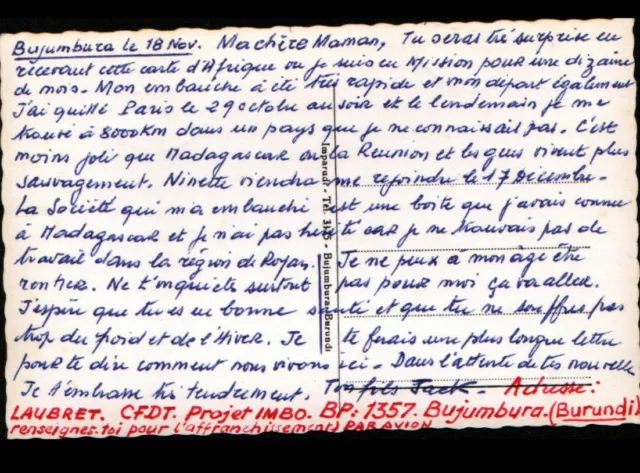 Bujumbura le 18 Nov. Ma chère Maman, Tu seras très surprise en
recevant cette carte d'Afrique ou je suis en Mission pour une dizaine
de mois. Mon embauche a été très rapide et mon départ également
J'ai quitté Paris le 29 octobre au soir et le lendemain je me
trouvé à 8000 Km dans un pays que je ne connaissais pas. C'est
moins joli que Madagascar ou la Réunion et les gens vivent plus
sauvagement. Ninette viendra me rejoindre le 17 Décembre.
La Société qui m'a embauché est une boite que j'avais connu
à Madagascar et je n'ai pas hésité car je ne trouvais pas de
travail dans la région de Royan. Je ne peux à mon âge être
rentier. Ne t'inquiète surtout pas pour moi ça va aller.
J'espère que tu es en bonne santé et que tu ne souffres pas
trop du froid et de l'Hiver. Je te ferais une plus longue lettre
pour te dire comment nous vivons ici. Dans l'attente de tes nouvelle
Je t'embrasse très tendrement. Ton fils Jack. Adresse:
LAUBRET. CFDT. Projet IMBO. BP: 1357. Bujumbura. (Burundi)
renseignes-toi pour l'affranchissement) PAR AVION
Imparudi - Tél. 3125 - Bujumbura-Burundi